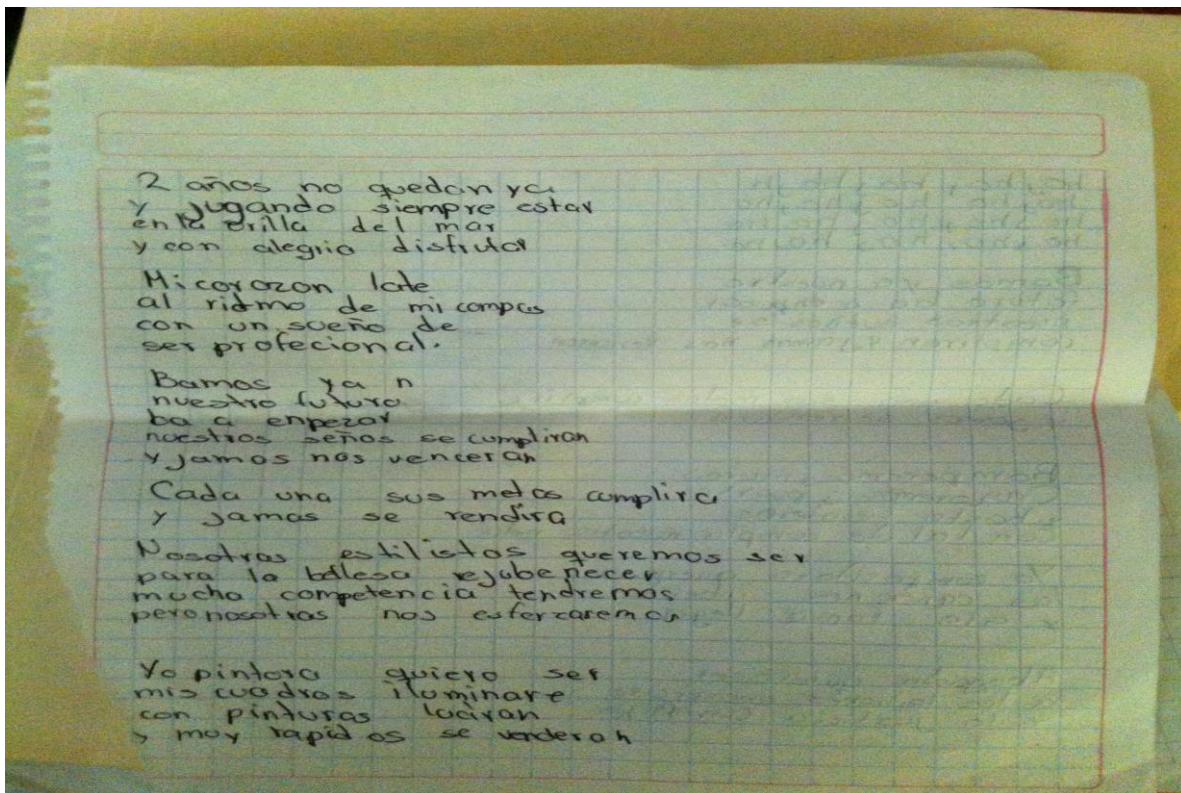 2 años no quedan ya
y jugando siempre estar
en la orilla del mar
y con alegria disfrutar
Mi corazon late
al ritmo de mi compas
con un sueño de
ser profecional.
Bamos ya n
nuestro futuro
ba a enpezar
nuestros seños se cumpliran
y jamas nos venceran
Cada una sus metas cumplira
y jamas se rendira
Nosotras estilistas queremos ser
para la bellesa rejubenecer
mucha competencia tendremos
pero nosotras nos esforzaremos
Yo pintora quiero ser
mis cuadros iluminare
con pinturas luciran
y muy rapidos se venderan